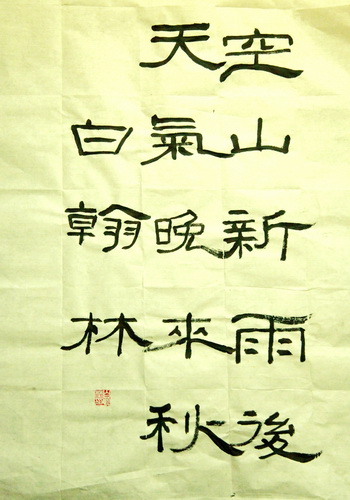 空山新雨後
天氣晚來秋
白翰林